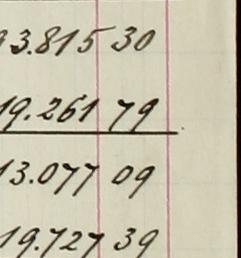 3.815 30
19.261 79
13.077 09
19.727 39